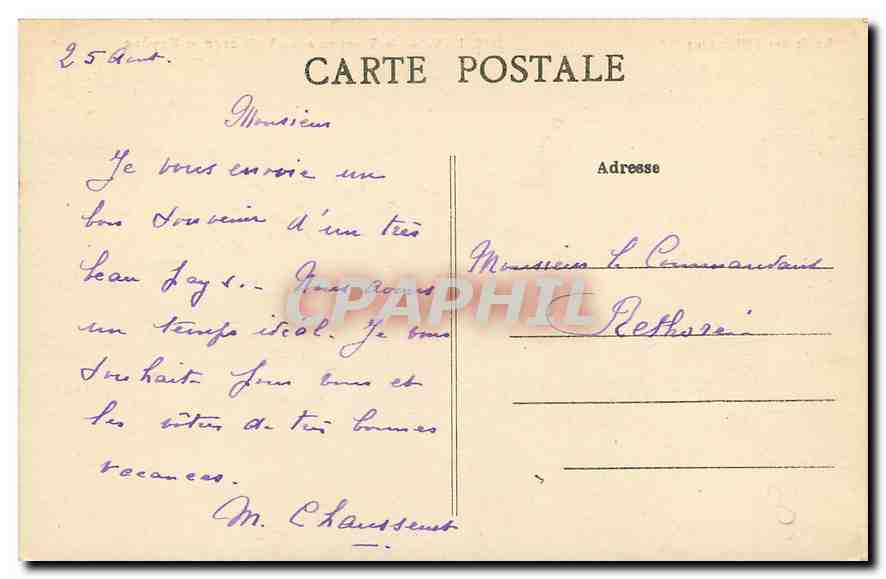 25 Aout.
CARTE POSTALE
Monsieur
Je vous envoie un
bon souvenir d'un très
beau pays.- Nous avons
un temps idéal. Je vous
souhaite pour vous et
les vôtres de très bonnes
vacances.
M. Chaussenot
Adresse
Monsieur le Commandant
CPAPHIL